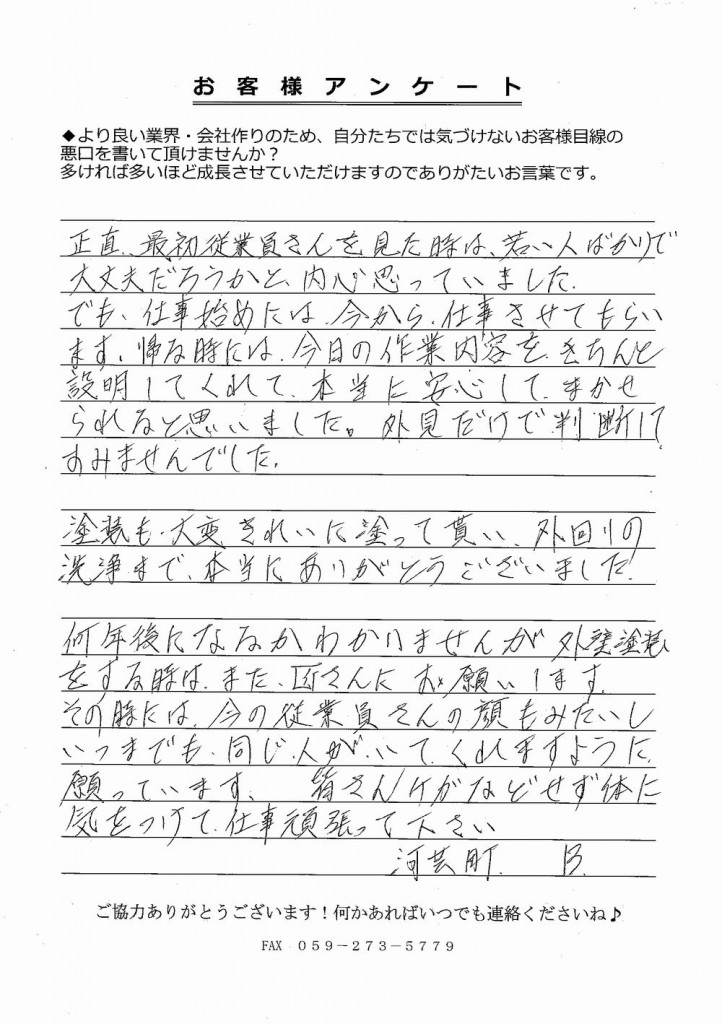 お客様アンケート
◆より良い業界・会社作りのため、自分たちでは気づけないお客様目線の
悪口を書いて頂けませんか？
多ければ多いほど成長させていただけますのでありがたいお言葉です。
正直、最初従業員さんを見た時は、若い人ばかりで
大丈夫だろうかと、内心思っていました。
でも、仕事始めには、今から、仕事させてもらい
ます、帰る時には、今日の作業内容を、きちんと
説明してくれて、本当に安心して、まかせ
られると思いました。外見だけで判断して
すみませんでした。
塗装も、大変きれいに塗って貰い、外回りの
洗浄まで、本当にありがとうございました。
何年後になるかわかりませんが外壁塗装
をする時は、また、匠さんにお願いします。
その時には、今の従業員さんの顔もみたいし
いつまでも、同じ人が、いて、くれますように
願っています、皆さんケガなどせず体に
気をつけて、仕事頑張って下さい
河芸町 B.
ご協力ありがとうございます！何かあればいつでも連絡くださいね♪
FAX 059－273－5779